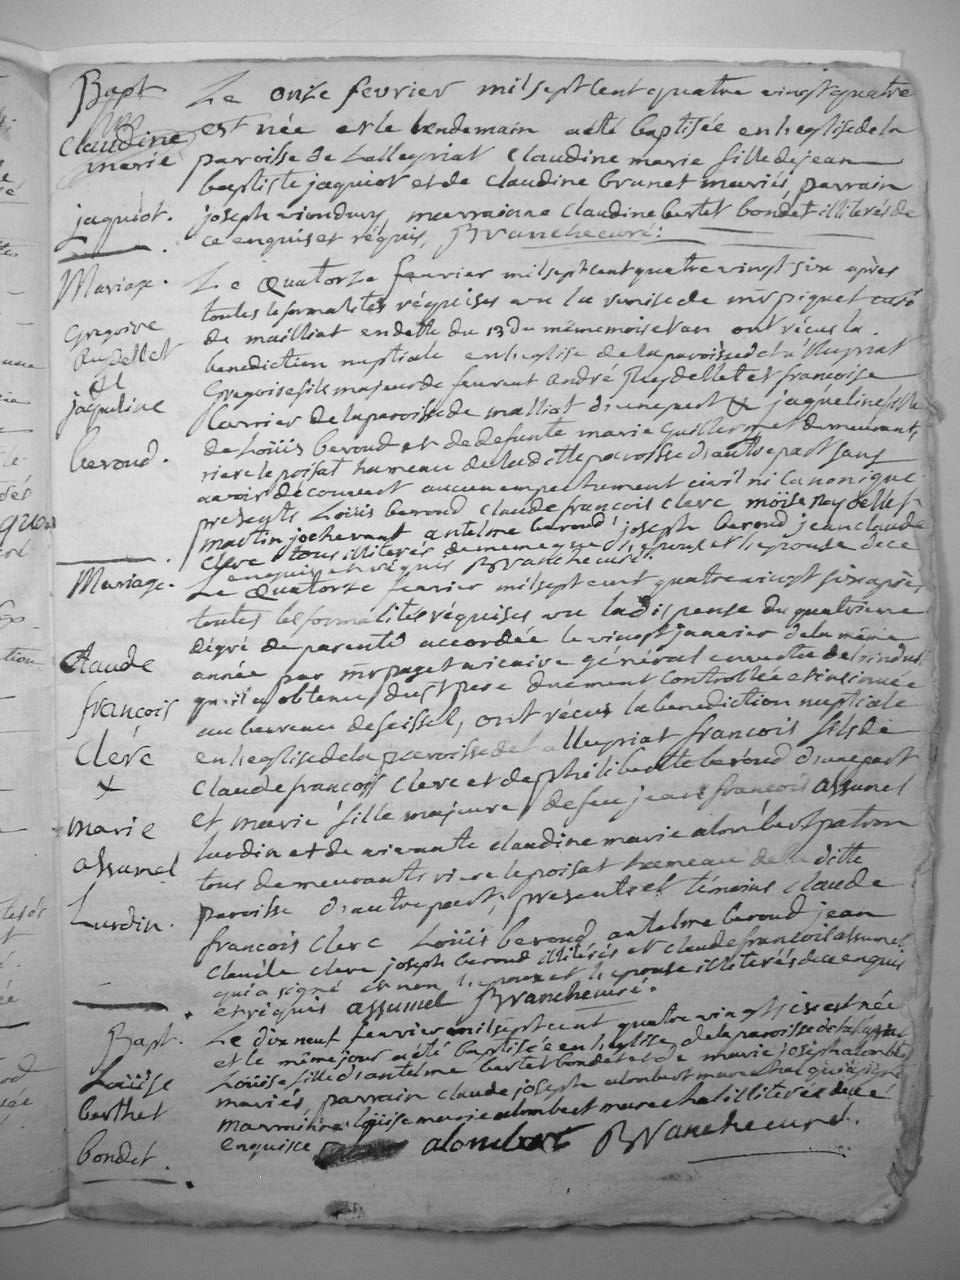 Bapt
Claudine
marie
jaquiot.
Le onze fevrier mil sept cent quatre vingt quatre
est née et le lendemain a été baptisée en l'eglise de la
paroisse de Lalleyriat Claudine marie fille de jean
baptiste jaquiot et de Claudine brunet mariés, parrain
joseph marraine Claudine bertet bondet illiterés de
ce enquis et réquis, Blanche curé.
Mariage.
Gregoire
Ruydellet
et
jaqueline
beroud.
Le Quatorze fevrier mil sept cent quatre vingt six après
toutes les formalités réquises vu la remise de mr piquet curé
de mailliat en datte du 13 du même mois et an ont récus la
benediction nuptiale en l'eglise de la paroisse de Lalleyriat
Gregoire fils majeur de feu André Ruydellet et françoise
de la paroisse de malliat d'une part & jaqueline fille
de Loüis beroud et de defunte marie Guillermet demeurant,
riere le poisat hameau de la ditte paroisse d'autre part sans
avoir découvert aucun empechement civil ni canonique
presents Loüis beroud Claude francois clerc moïse Ruydellet
martin jochevant antelme beroud joseph beroud jean claude
Clerc tous illiterés de meme que l'epoux et l'epouse de ce
enquis et réquis Blanche curé.
Mariage.
Claude
françois
Clerc
+
marie
assumel
Lurdin.
Le Quatorze fevrier mil sept cent quatre vingt six après
toutes les formalités réquises vu la dispense du quatrieme
dégré de parenté accordée le vingt janvier de la même
année par mr paget vicaire général
qu'il a obtenu duement controllée et insinuée
au bureau de seissel, ont récus la benediction nuptiale
en l'eglise de la paroisse de Lalleyriat françois fils de
Claude françois Clerc et de philiberte beroud d'une part
et marie fille majeure de feu jean françois assumel
lurdin et de vivante claudine marie alombert patron
tous demeurants riere le poisat hameau de la ditte
paroisse d'autre part, presents et témoins Claude
francois Clerc Loüis beroud antelme beroud jean
Claude clerc joseph beroud illiterés et claude francois assumel
qui a signé et non l'epoux et l'epouse illiterés de ce enquis
et réquis assumel Blanche curé.
Bapt.
Loüise
berthet
bondet.
Le dix neuf fevrier mil sept cent quatre vingt six est née
et le même jour a été baptisée en l'eglise de la paroisse de Lalleyriat
Loüise fille d'antelme bertet bondet et de marie joseph alombert
mariés, parrain claude joseph alombert marechal qui a signé
marraine loüise marie alombert marechal illiterée de ce
enquise alombert Blanche curé.